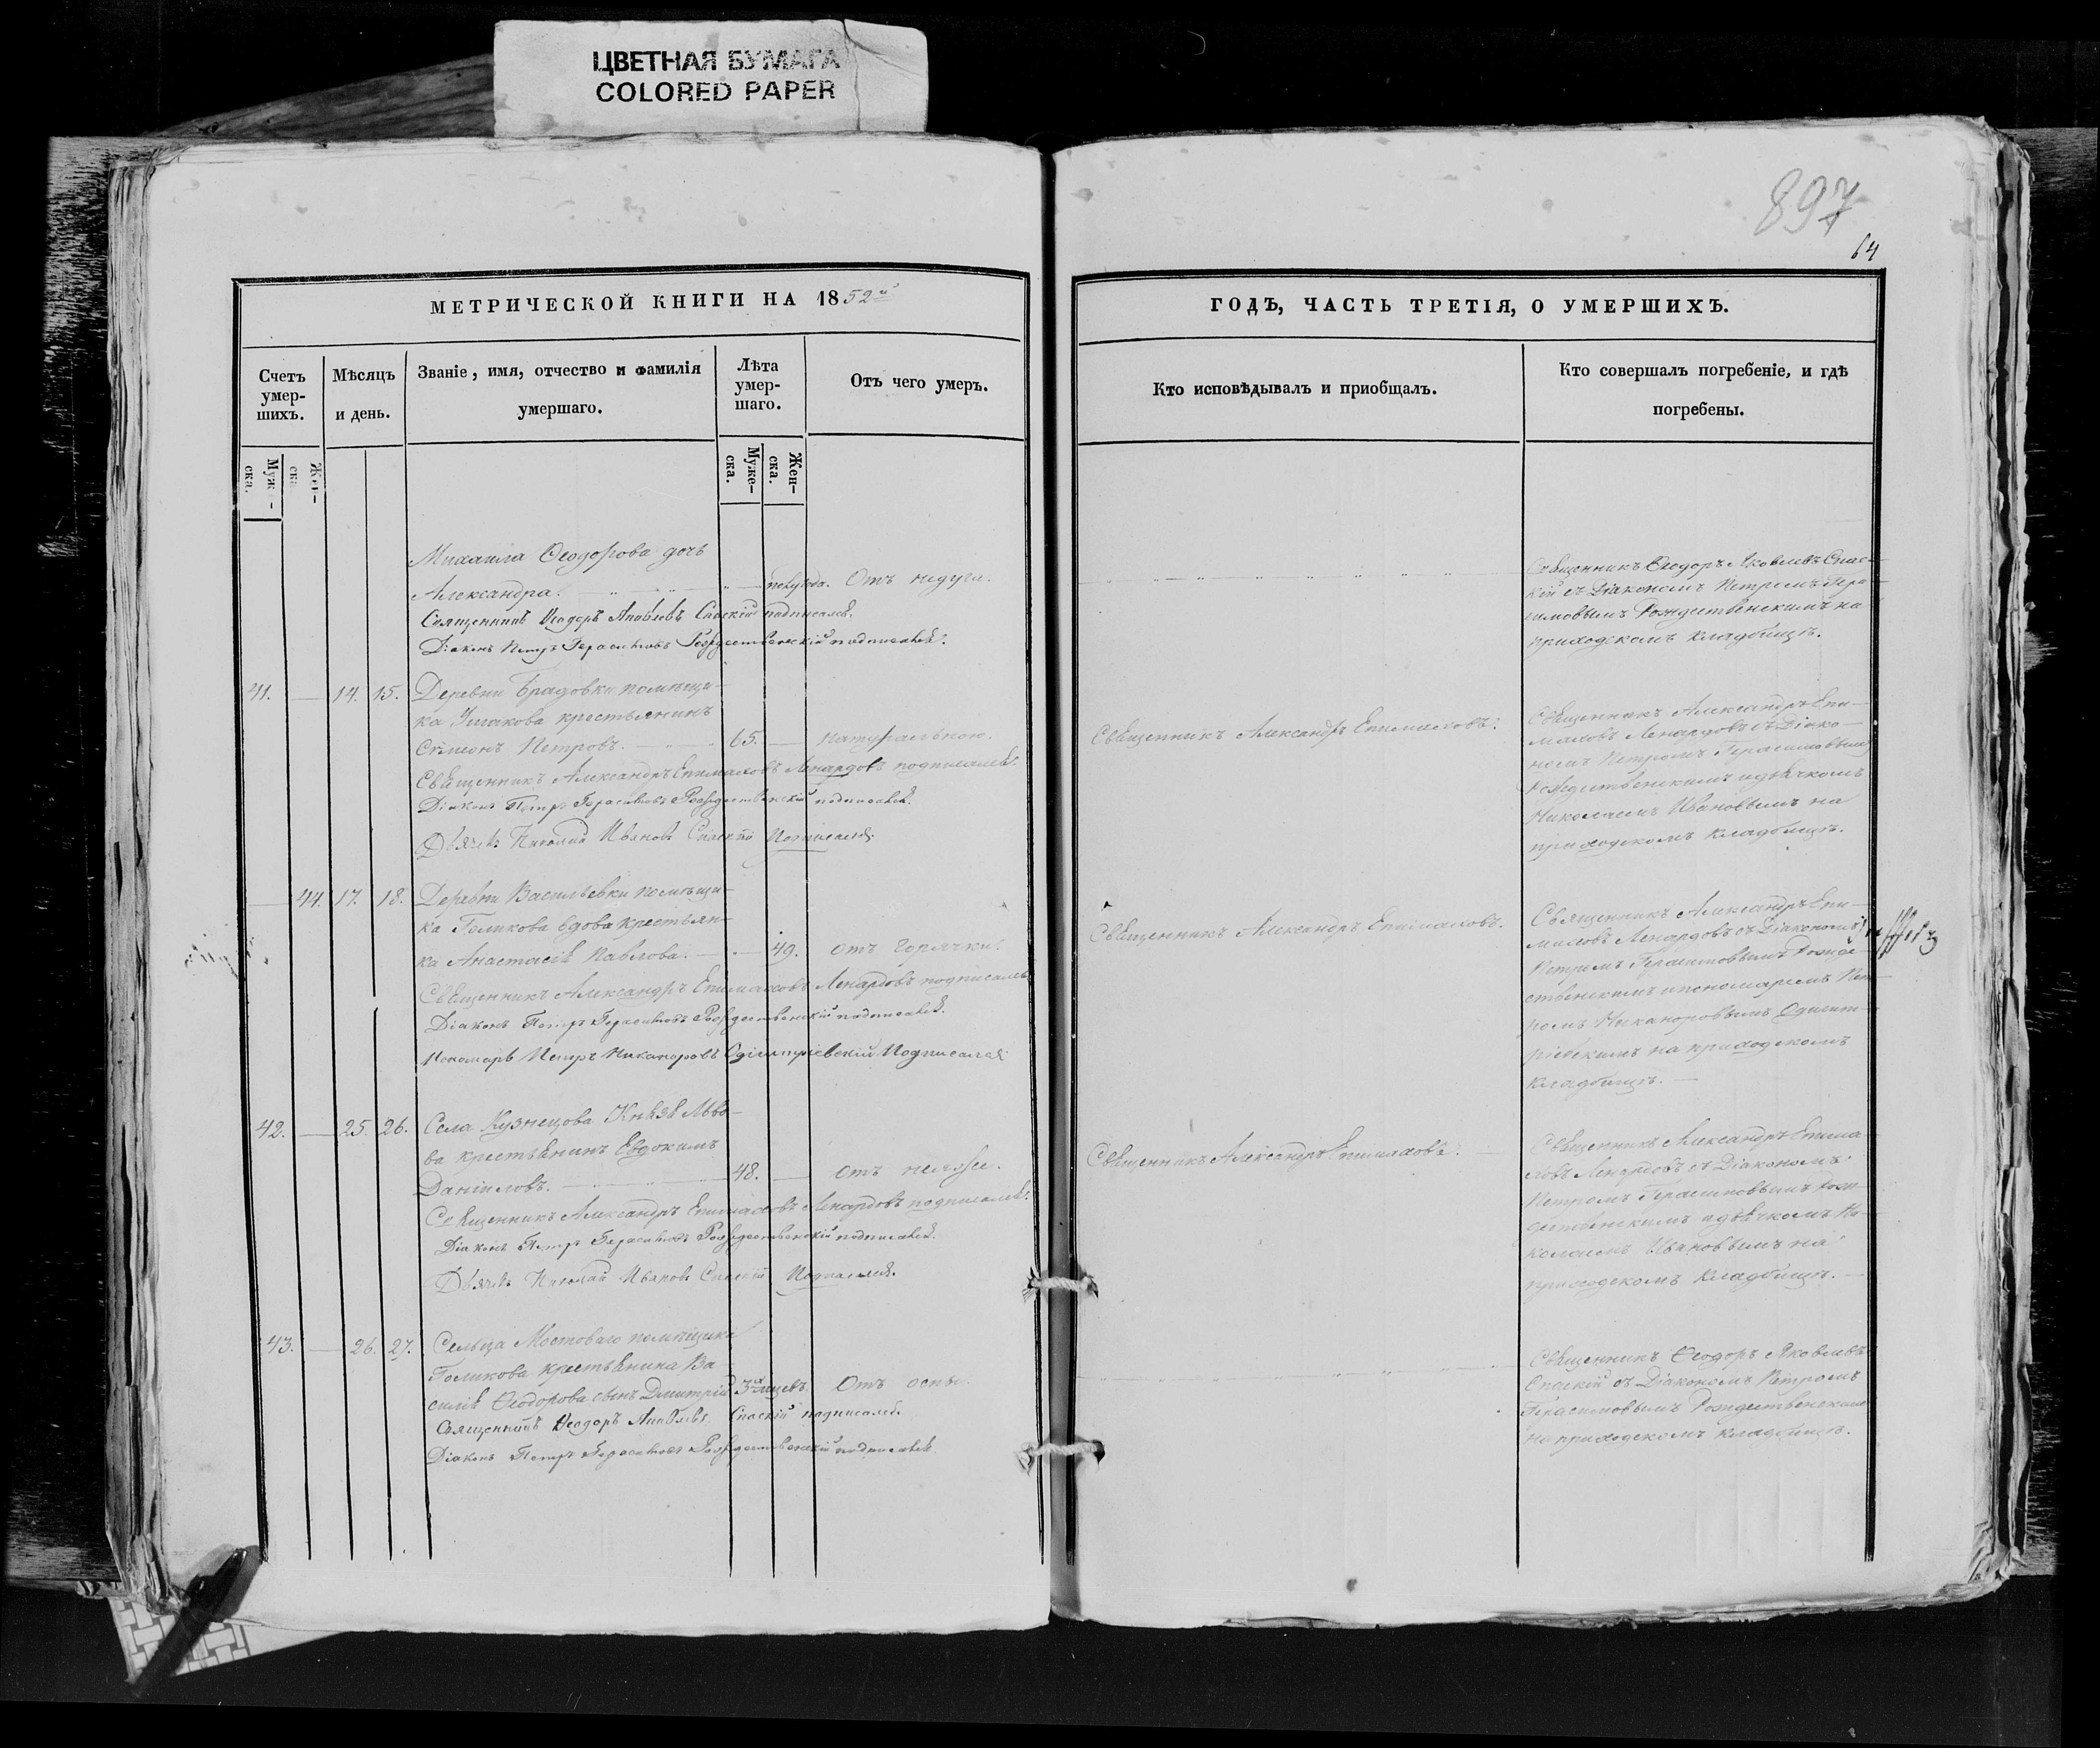 ЦВЕТНАЯ БУМАГА
COLORED PAPER
897
64
МЕТРИЧЕСКОЙ КНИГИ НА 1852й
ГОДЪ, ЧАСТЬ ТРЕТІЯ, О УМЕРШИХЪ.
Счетъ умер-
шихъ.
Мѣсяцъ
и день.
Званіе, имя, отчество и фамилія
умершаго.
Лѣта
умер-
шаго.
Отъ чего умеръ.
Кто исповѣдывалъ и приобщалъ.
Кто совершалъ погребеніе, и гдѣ
погребены.
Муже-
ска.
Жен-
ска
Муже-
ска.
Жен-
ска.
Михаила Ѳеодорова дочь
Александра. Отъ недуга.
Священникъ Ѳеодоръ Яковлевъ Спаскій подписался.
Діаконъ Петръ Герасимовъ Рождественскій подписался.
Священникъ Ѳеодоръ Яковлевъ Спас-
кій съ Діакономъ Петромъ Гера-
симовымъ Рождественскимъ на
приходскомъ кладбищѣ.
41. 14. 15. Деревни Брадовки помѣщи-
ка Ушакова крестьянинъ
Стѵмеонъ Петровъ. 65. натуральною.
Священникъ Александръ Епимаховъ Ленардовъ подписался.
Діаконъ Петръ Герасимовъ Рождественскій подписался.
Дьячекъ Николай Ивановъ Спаскій Подписался
Священникъ Александръ Епимаховъ.
Священникъ Александръ Епи-
маховъ Ленардовъ съ Діако-
номъ Петромъ Герасимовымъ
Рождественскимъ и дьячкомъ
Николаемъ Ивановымъ на
приходскомъ кладбищѣ.
44. 17. 18. Деревни Васильевки помѣщи-
ка Голикова вдова крестьян-
ка Анастасія Павлова. 49. отъ горячки.
Священникъ Александръ Епимаховъ Ленардовъ подписался
Діаконъ Петръ Герасимовъ Рождественскій подписался.
Пономарь Петръ Никаноровъ Одигитріевскій Подписался
Священникъ Александръ Епимаховъ.
Священникъ Александръ Епи-
маховъ Ленардовъ съ Діакономъ
Петромъ Герасимовымъ Рожде-
ственскимъ и пономаремъ Пет-
ромъ Никаноровымъ Одигит-
ріевскимъ на приходскомъ
кладбищѣ.
42. 25. 26. Села Кузнецова Князя Льво-
ва крестьянинъ Евдокимъ
Даніиловъ. 48. отъ
Священникъ Александръ Епимаховъ Ленардовъ подписался.
Діаконъ Петръ Герасимовъ Рождественскій подписался.
Дьячекъ Николай Ивановъ Спаскій Подписался.
Священникъ Александръ Епимаховъ.
Священникъ Александръ Епима-
ховъ Ленардовъ съ Діакономъ
Петромъ Герасимовымъ Рож-
дественскимъ и дьячкомъ Ни-
колаемъ Ивановымъ на
приходскомъ кладбищѣ.
43. 26. 27. Сельца Мостоваго помѣщика
Голикова крестьянина Ва-
силія Ѳеодорова сынъ Димитрій 3хмѣсяцевъ. Отъ оспы.
Священникъ Ѳеодоръ Яковлевъ Спаскій подписался.
Діаконъ Петръ Герасимовъ Рождественскій подписался.
Священникъ Ѳеодоръ Яковлевъ
Спаскій съ Діакономъ Петромъ
Герасимовымъ Рождественскимъ
на приходскомъ кладбищѣ.